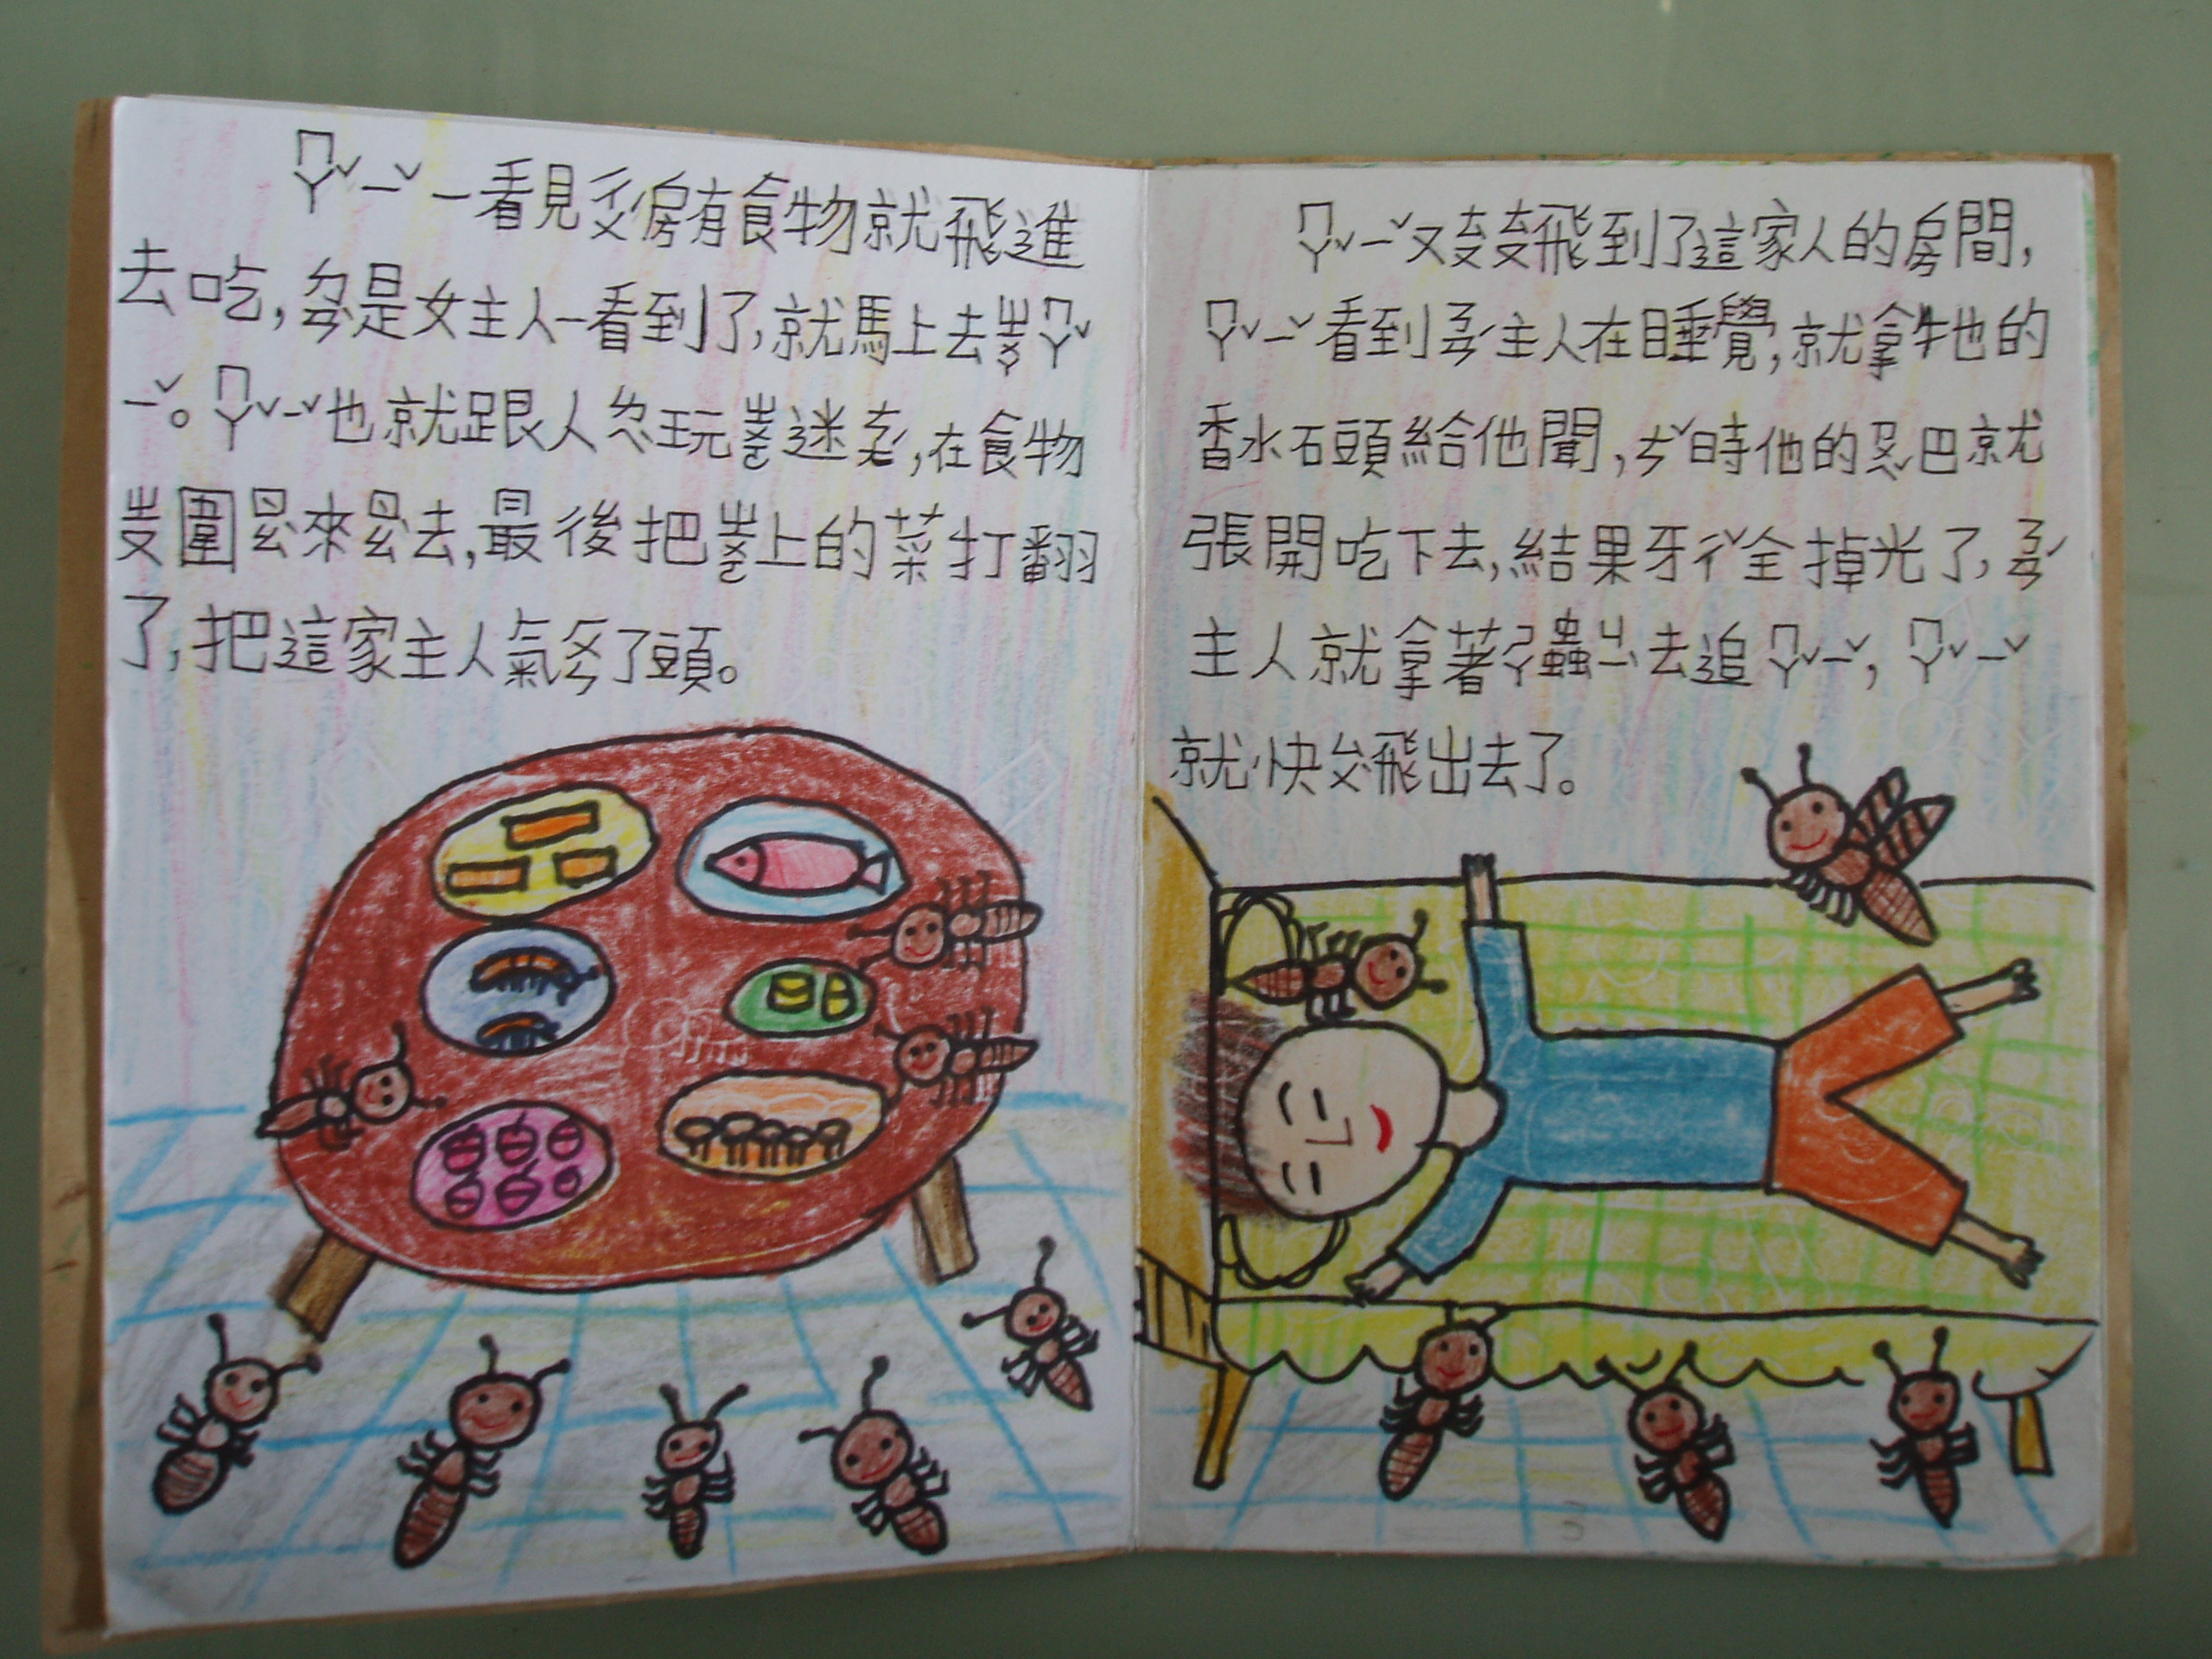 ㄇㄚˇㄧˇ一看見ㄔㄨˊ房有食物就飛進
去吃,ㄉㄢˋ是女主人一看到了,就馬上去ㄓㄨㄚㄇㄚˇ
ㄧˇ。ㄇㄚˇㄧˇ也就跟人ㄌㄟˋ玩ㄓㄨㄛ迷ㄘㄤˊ,在食物
ㄓㄡ圍ㄖㄠˋ來ㄖㄠˋ去,最後把ㄓㄨㄛ上的菜打翻
了,把這家主人氣了頭。
ㄇㄚˇㄧˇ又ㄊㄡㄊㄡ飛到了這家人的房間,
ㄇㄚˇㄧˇ看到ㄋㄢˊ主人在睡覺,就拿牠的
香水石頭給他聞,ㄘˇ時他的ㄗㄨㄟˇ巴就
張開吃下去,結果牙ㄔˇ全掉光了,ㄋㄢˊ
主人就拿著ㄕㄚ蟲去追ㄇㄚˇㄧˇ,ㄇㄚˇㄧˇ
就快ㄙㄨˋ飛出去了。